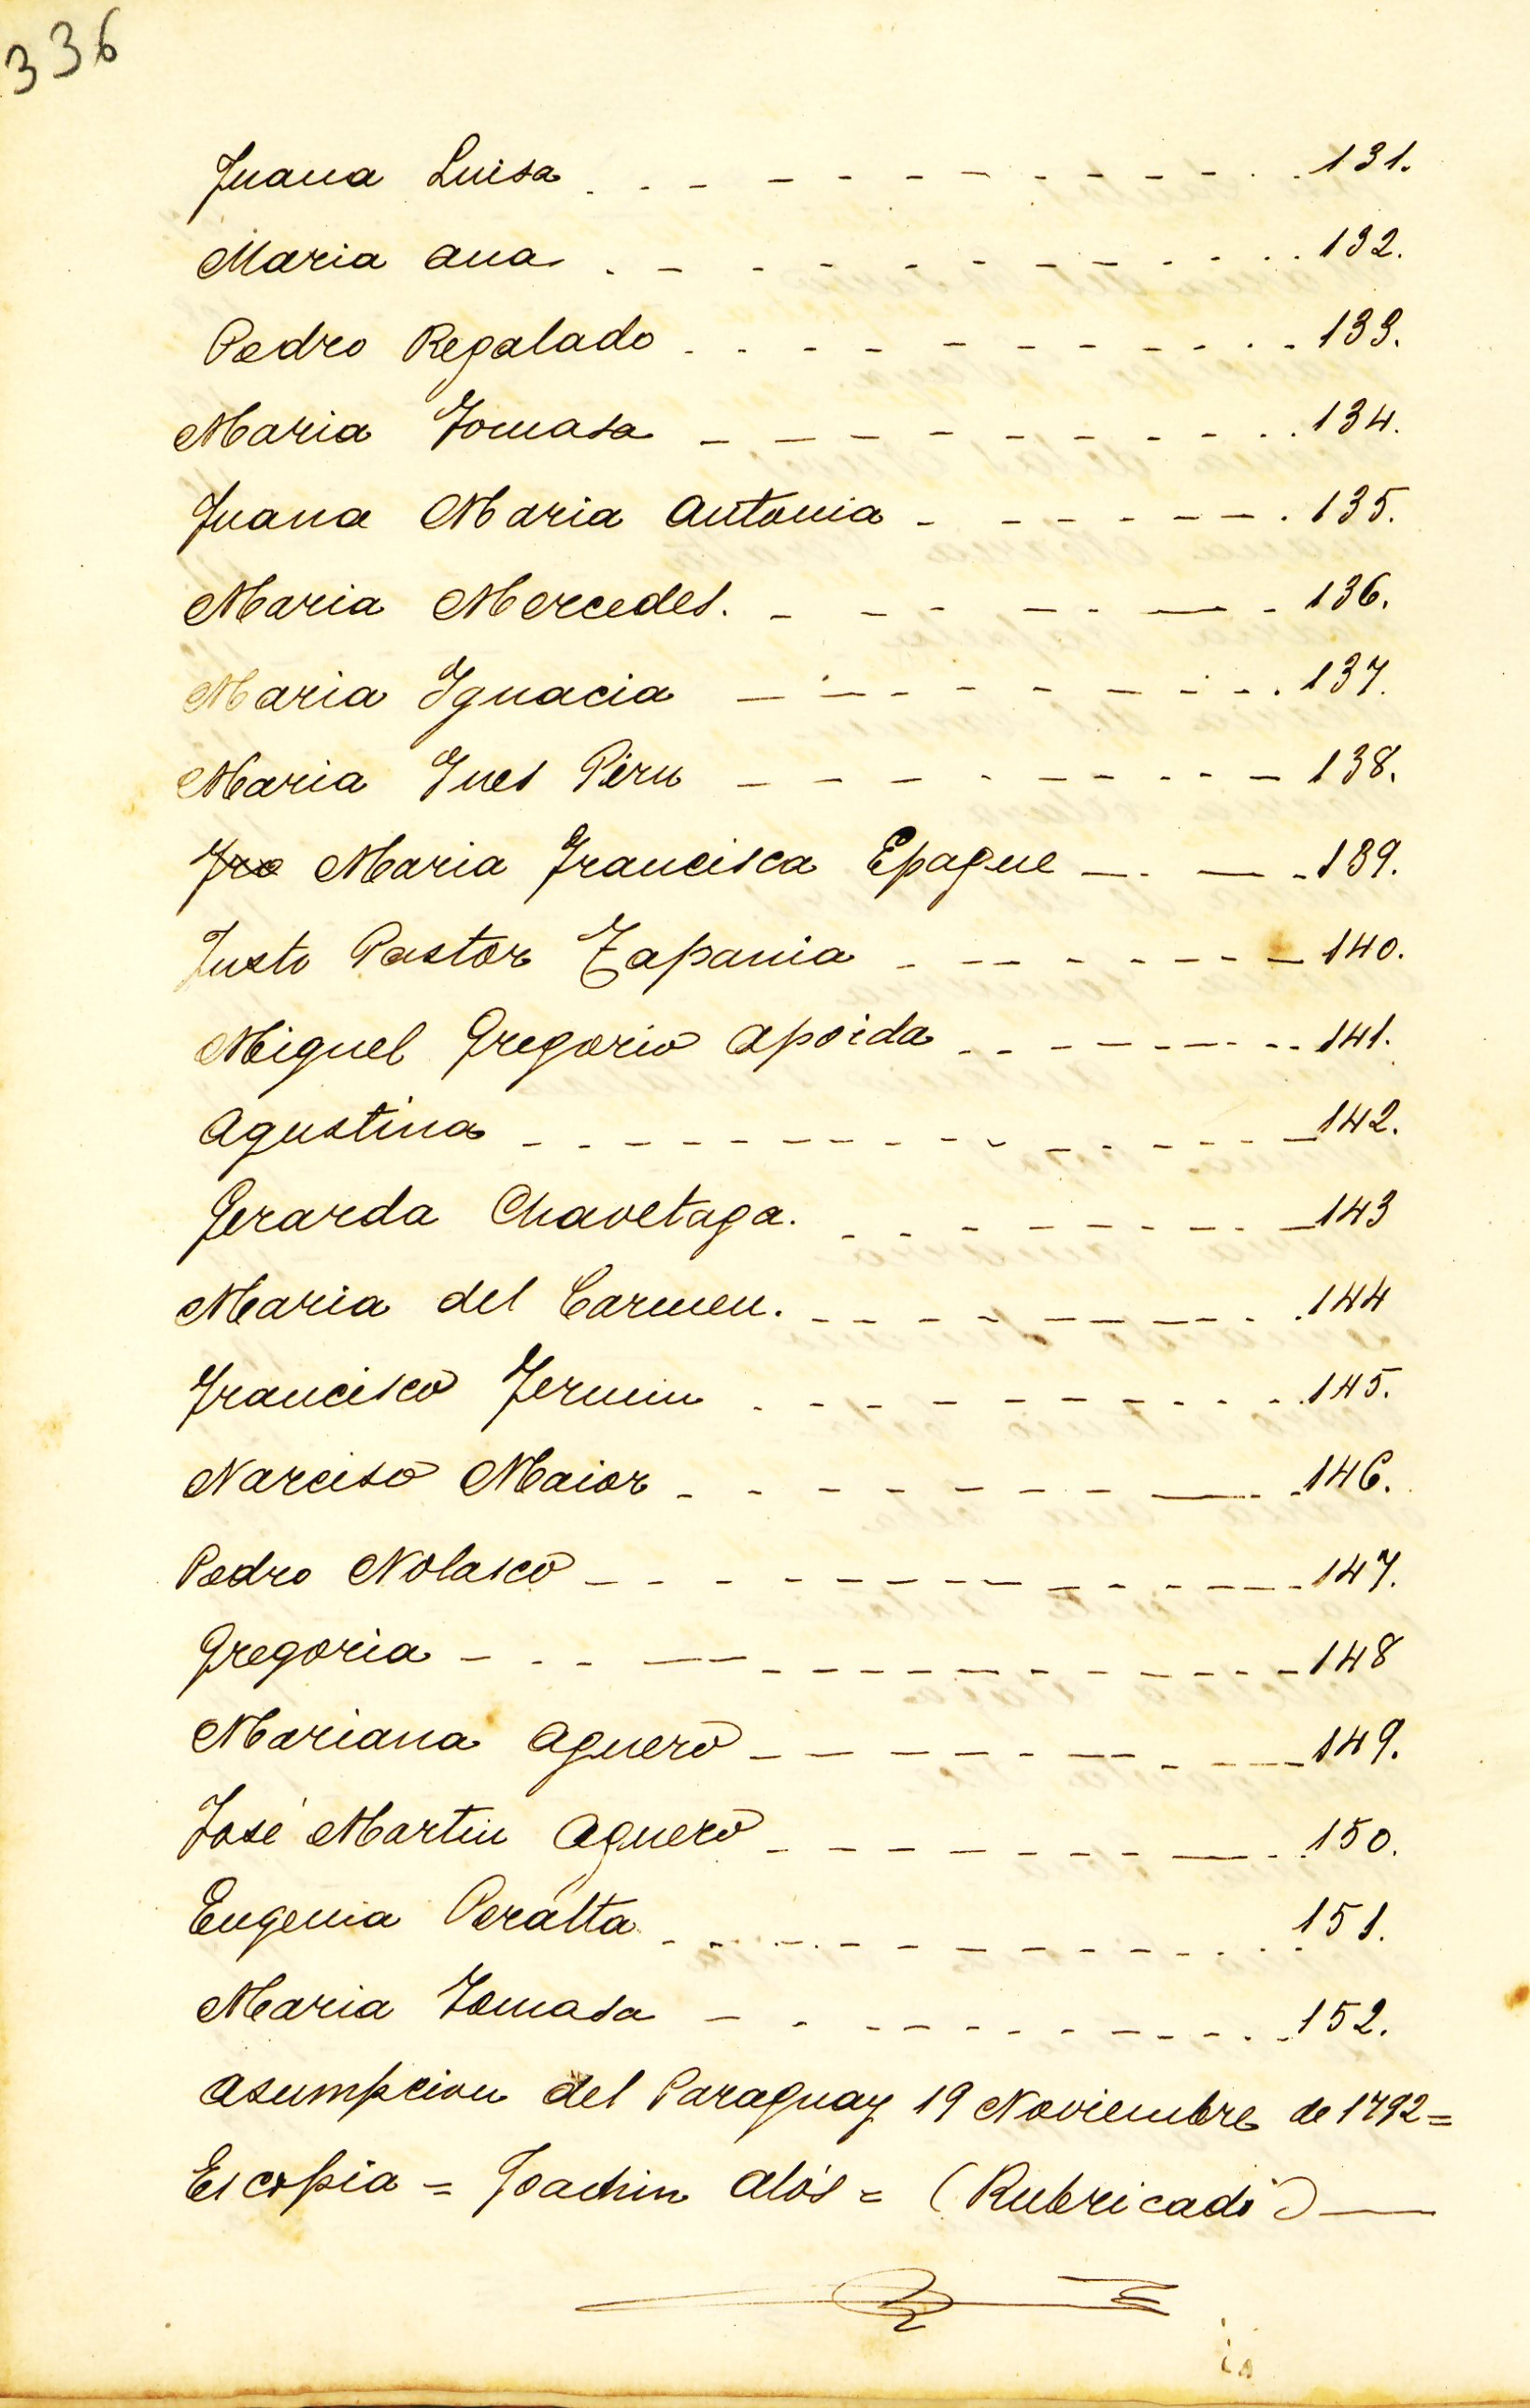 336
Juana Luisa . . - - - - - - - - - - . . 131.
Maria Ana . - - - - - - - - - . . 132.
Pedro Regalado . . - - - - - - - . . - 133.
Maria Tomasa - - - - - - - - - . . 134.
Juana Maria Antonia - - - - - - . 135.
Maria Mercedes. - - - - - - - 136.
Maria Ignacia - - - - - - - - - . 137.
Maria Ines Piru - - - - - - - - - 138.
Fra Maria Francisca Epague - . - - 139.
Justo Pastor Tapania - - - - - - - 140.
Miguel Gregorio Apoida - - - - - - - 141.
Agustina - - - - - - - - - - - - - 142.
Gerarda Chavetaga. - - - - - - - - 143
Maria del Carmen. - - - - - - - . . 144
Francisco Fermin . - - - - - - - . . 145.
Narciso Maior - - - - - - - - - . 146.
Pedro Nolasco - - - - - - - - - - - 147.
Gregoria - - - - - - - - - - - - - 148
Mariana Aguero - - - - - - - - - 149.
José Martin Aguero - - - - - - - - . . 150.
Eugenia Peralta - - - - - - - - - . . 151.
Maria Tomasa - - - - - - - - - . . 152.
Asumpcion del Paraguay 19 Noviembre de 1792=
Es copia = Joachin Alós = (Rubricado) —